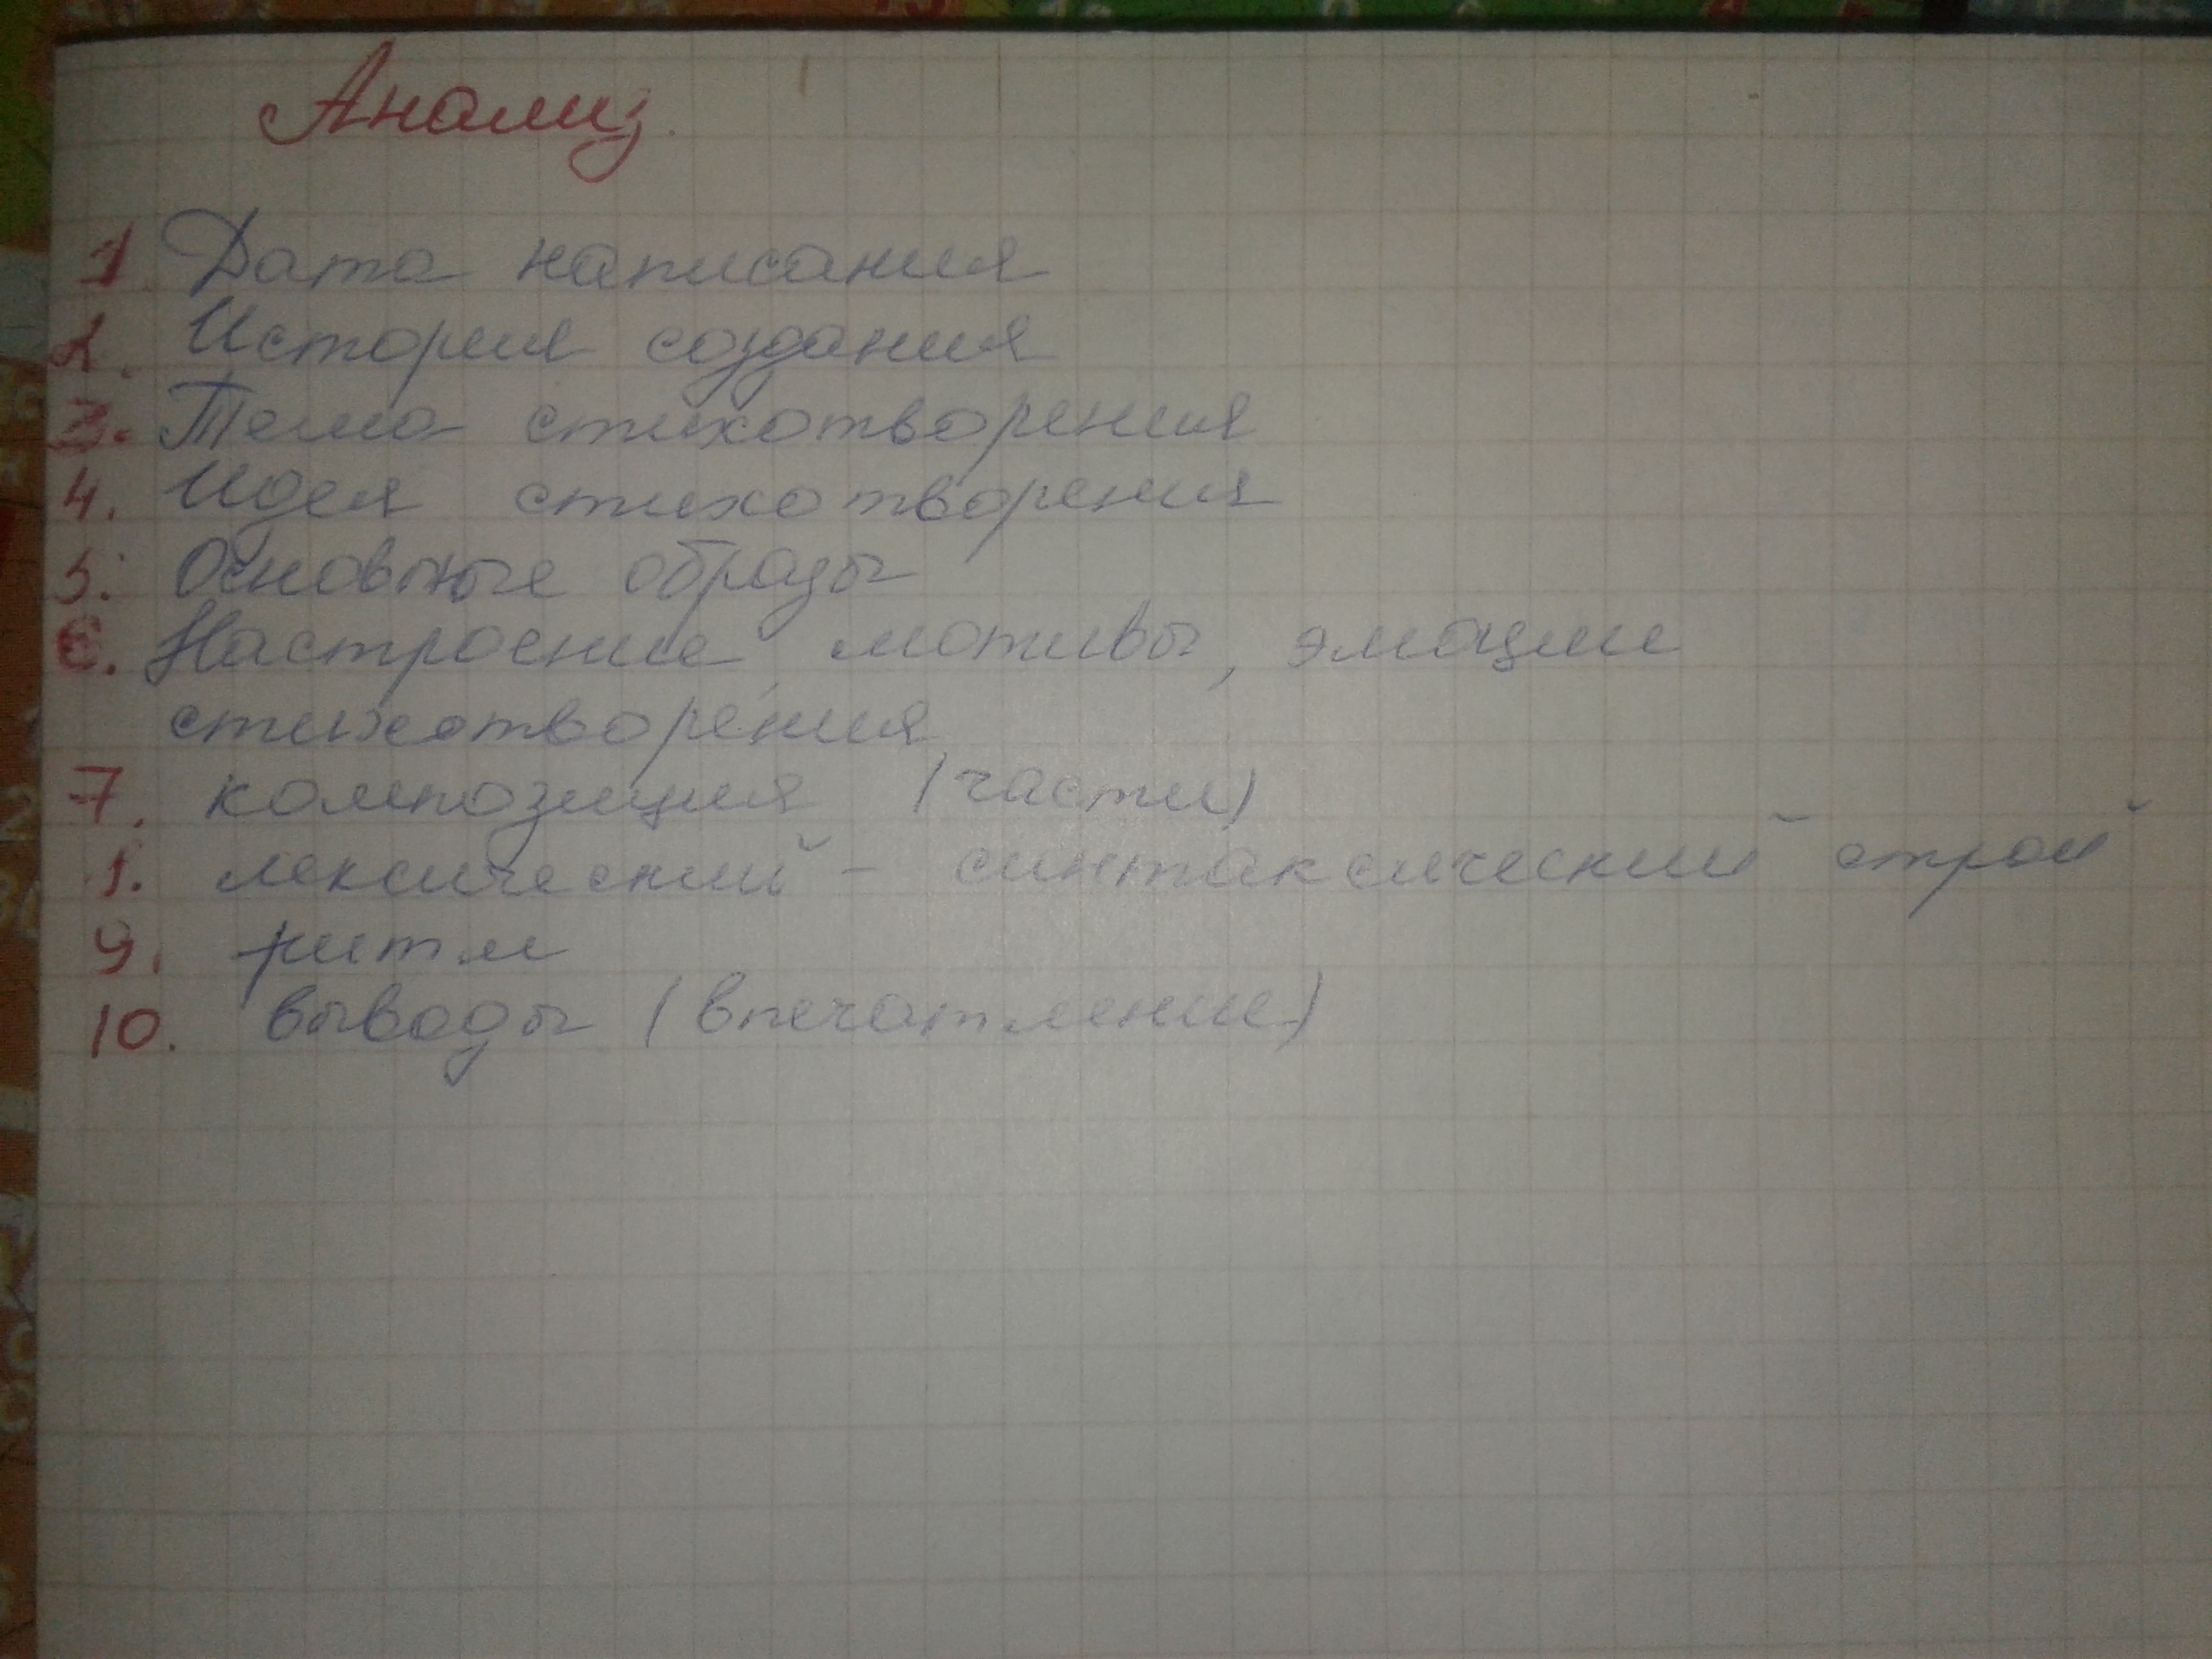 Анализ.
1. Дата написания
2. История создания
3. Тема стихотворения
4. Идея стихотворения
5. Основные образы
6. Настроение, мотивы, эмоции
стихотворения
7. композиция (части)
8. лексический - синтаксический строй
9. ритм
10. выводы (впечатление)